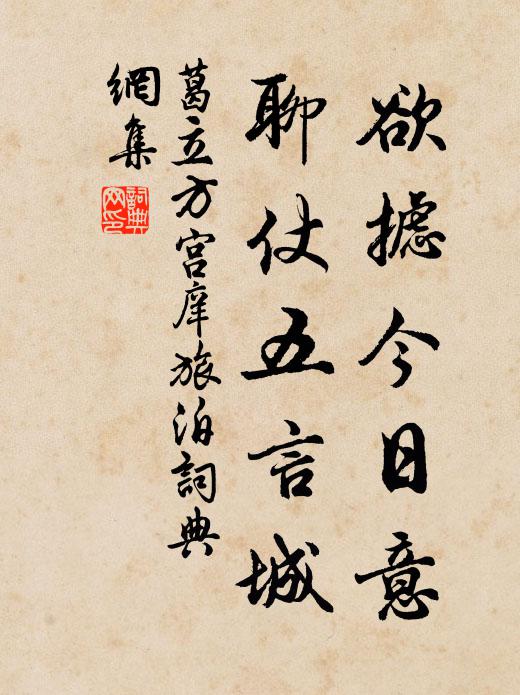 欲摅今日意
聊仗五言城
葛立方宫庠旅泊詞典
網集
詞典
网印